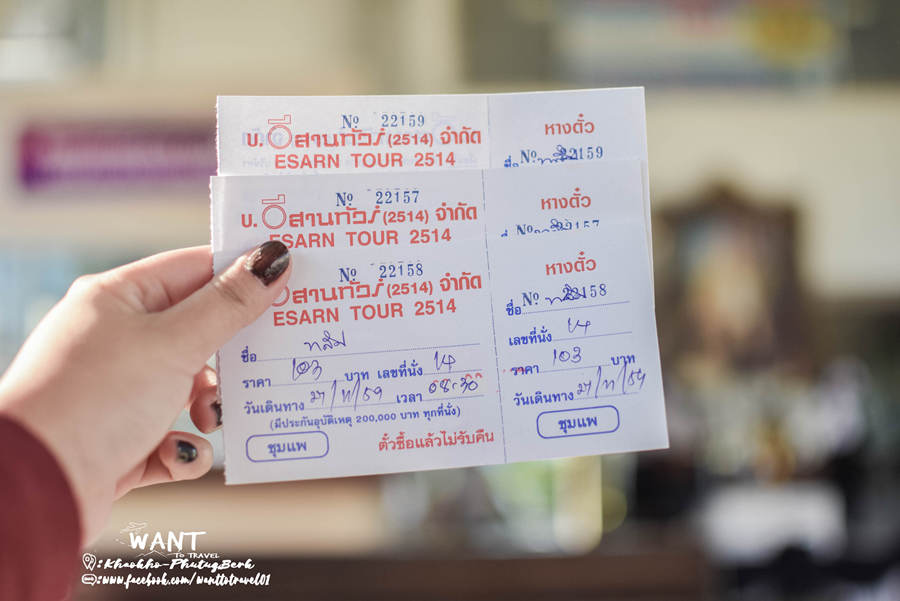 № 22159
บ. อีสานทัวร์ (2514) จำกัด
ESARN TOUR 2514
หางตั๋ว
ชื่อ № 22159
№ 22157
บ. อีสานทัวร์ (2514) จำกัด
ESARN TOUR 2514
หางตั๋ว
№ 22157
№ 22158
อีสานทัวร์ (2514) จำกัด
ESARN TOUR 2514
ชื่อ
ราคา 103 บาท เลขที่นั่ง
วันเดินทาง 27/11/59 เวลา 08.30
(มีประกันอุบัติเหตุ 200,000 บาท ทุกที่นั่ง)
ชุมแพ
ตั๋วซื้อแล้วไม่รับคืน
หางตั๋ว
№ 22158
ชื่อ
เลขที่นั่ง
ราคา 103 บาท
วันเดินทาง 27/11/59
ชุมแพ
WANT
TO TRAVEL
:Khaokho-PhutugBerk
:www.facebook.com/wanttotravel01